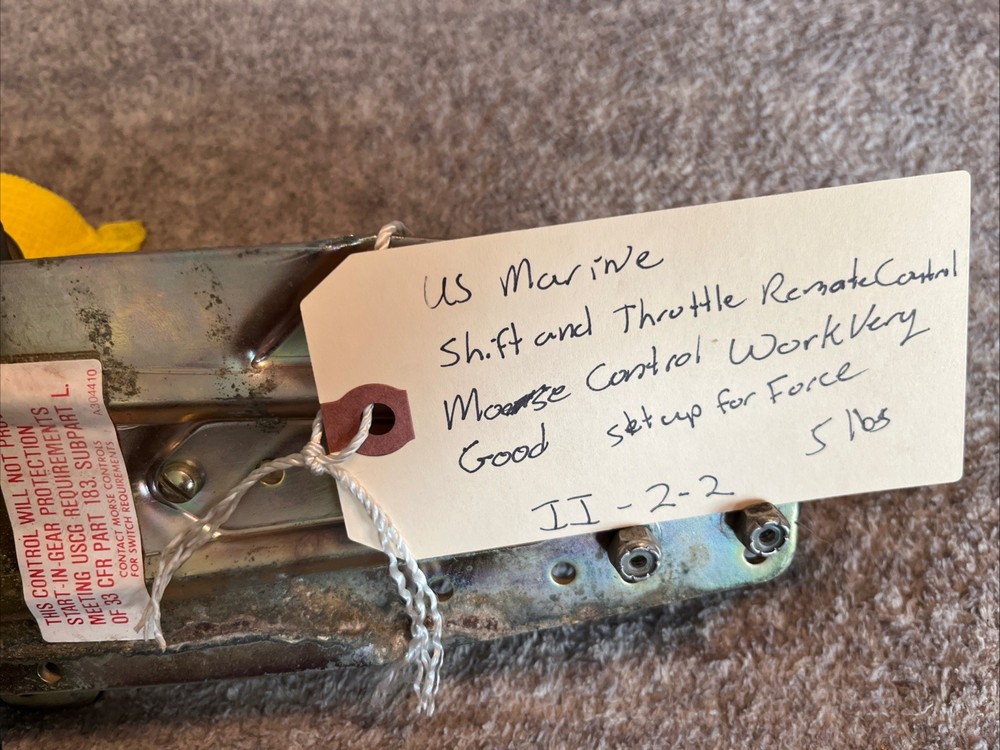 US Marine
Shift and Throttle Remote Control
Morse Control Work Very
Good set up for Force
5 lbs
II-2-2
THIS CONTROL WILL NOT
START-IN-GEAR PROTECTIONS
MEETING USCG REQUIREMENTS
OF 33 CFR PART 183. SUBPART L.
CONTACT MORSE CONTROLS
FOR SWITCH REQUIREMENTS
A304410